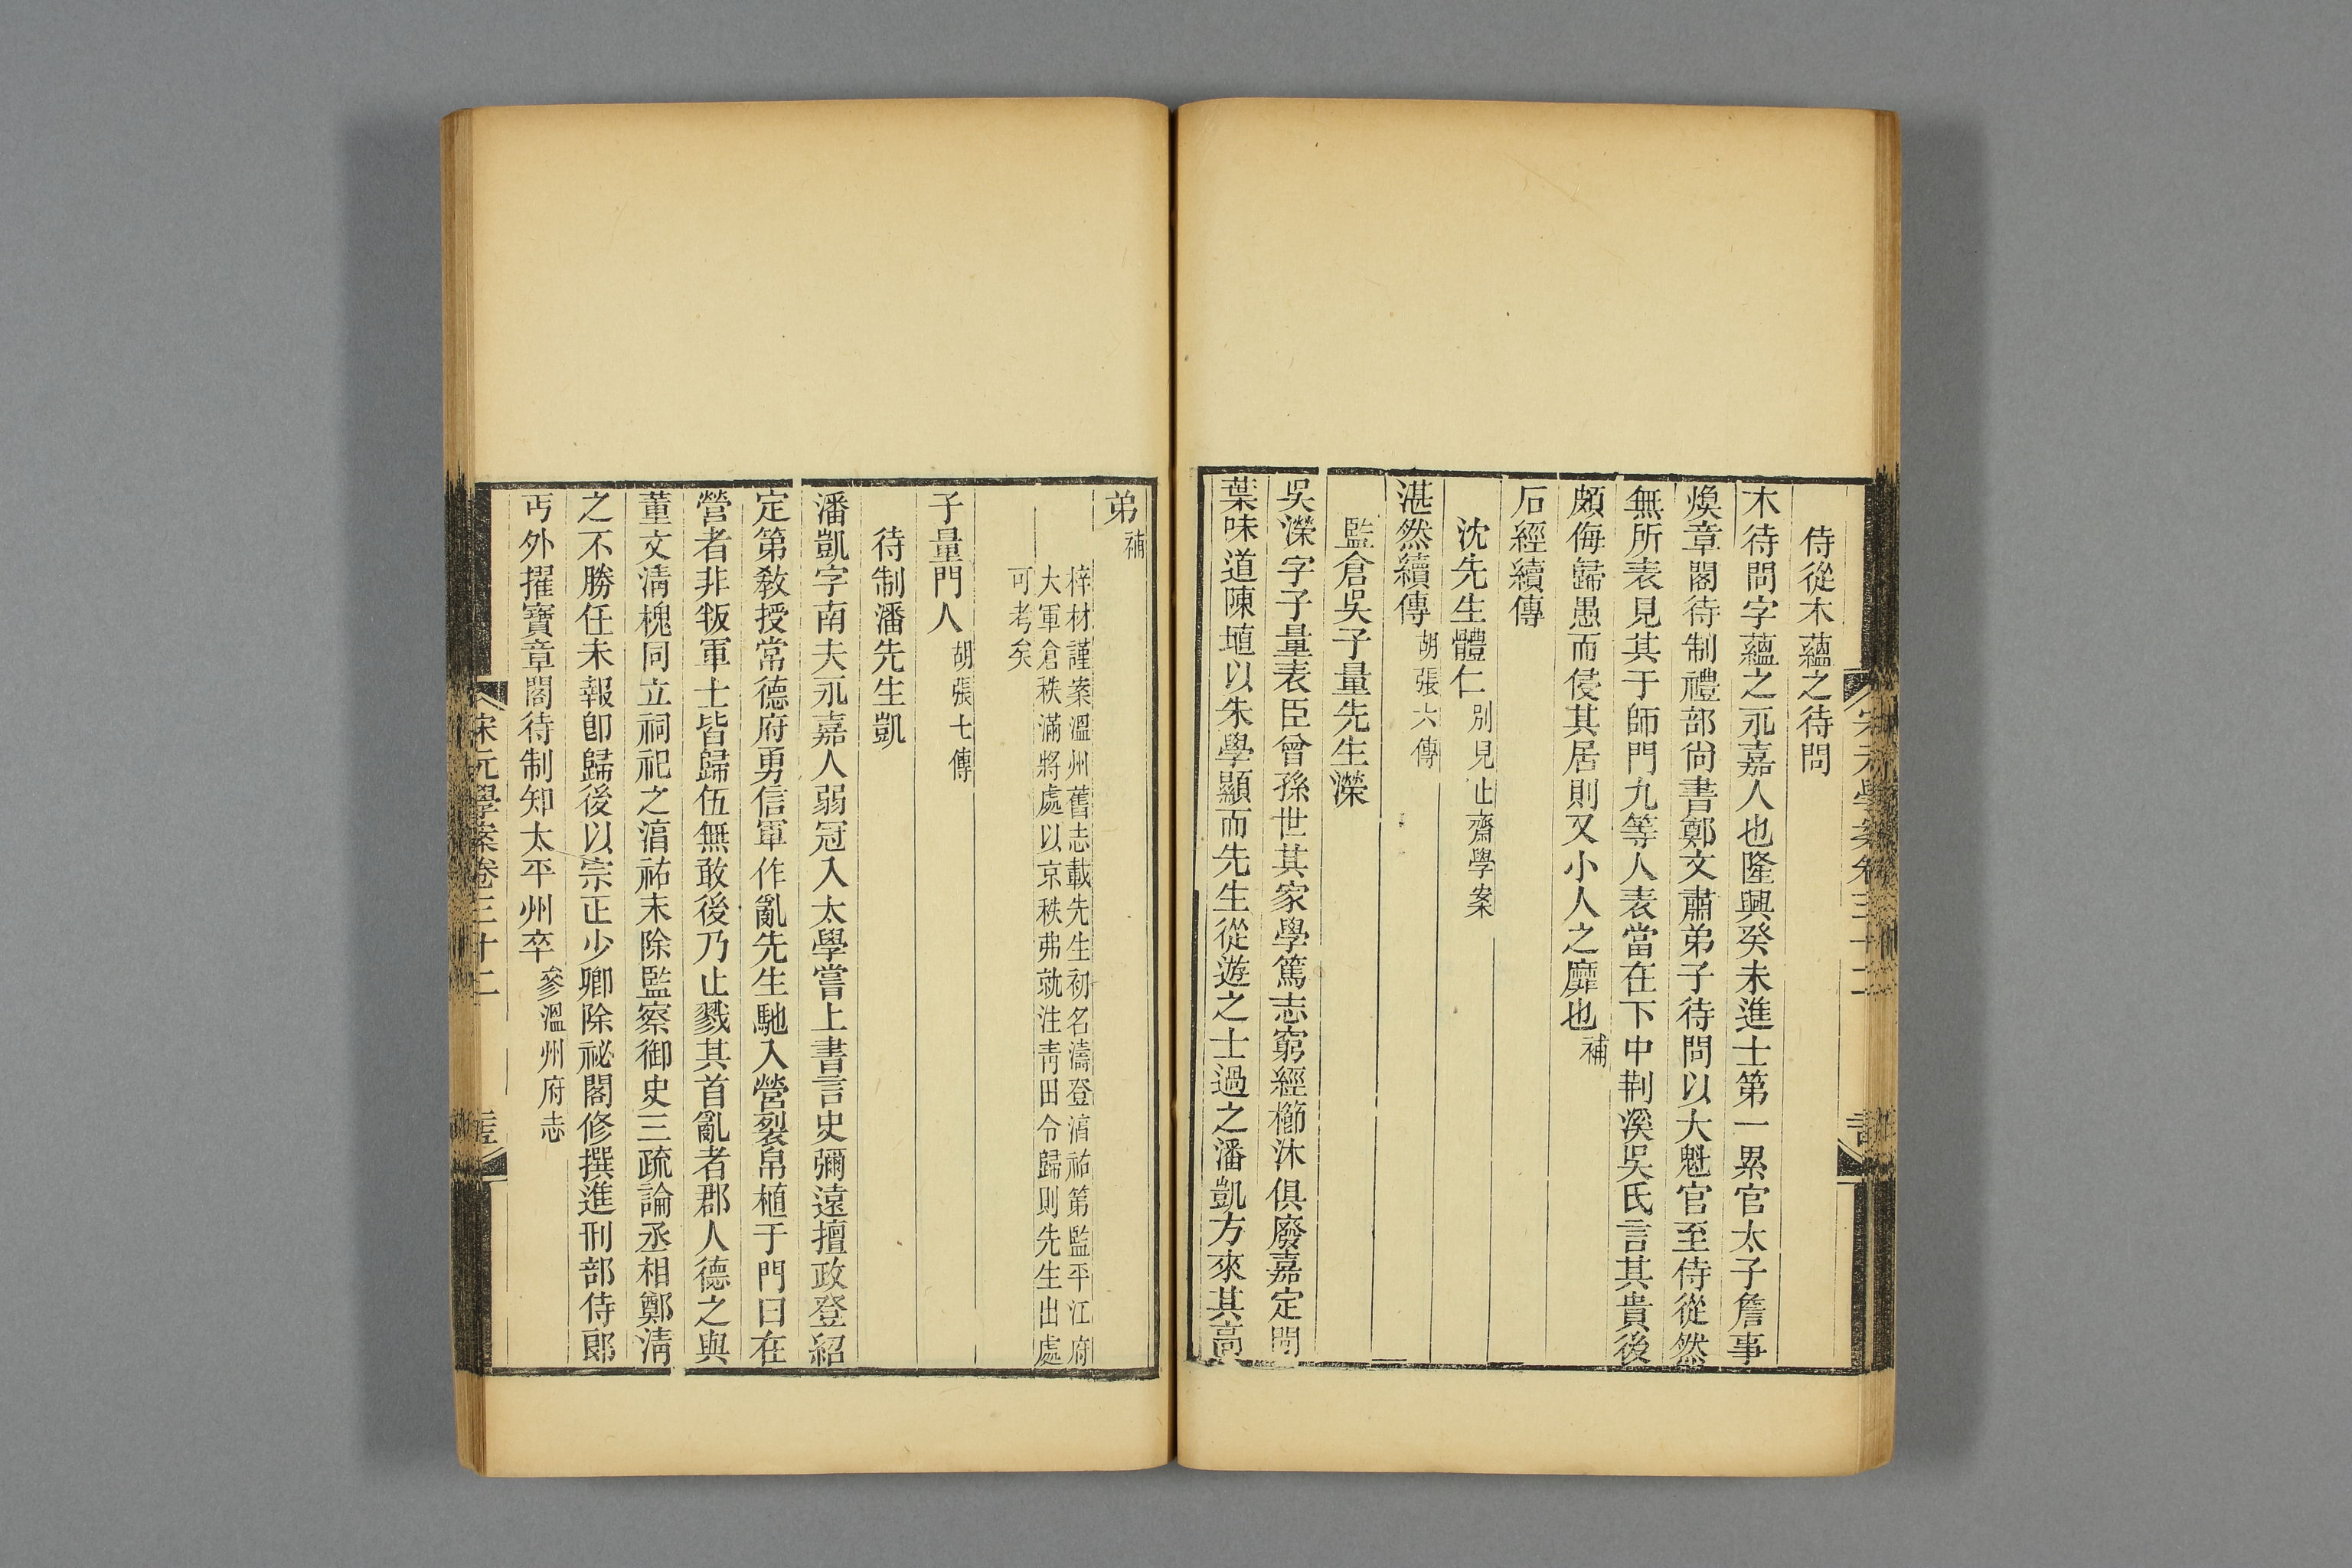 侍從木蘊之待問
木待問字蘊之永嘉人也隆興癸未進士第一累官太子詹事
煥章閣待制禮部尙書鄭文肅弟子待問以大魁官至侍從然
無所表見其于師門九等人表當在下中荆溪吳氏言其貴後
頗侮歸愚而侵其居則又小人之靡也補
石經續傳
沈先生體仁別見止齋學案
湛然續傳胡張六傳
監倉吳子量先生濚
吳濚字子量表臣曾孫世其家學篤志窮經櫛沐俱廢嘉定間
葉味道陳埴以朱學顯而先生從遊之士過之潘凱方來其高
弟補
梓材謹案溫州舊志載先生初名濤登淯祐第監平江府
大軍倉秩滿將處以京秩弗就注靑田令歸則先生出處
可考矣
子量門人胡張七傳
待制潘先生凱
潘凱字南夫永嘉人弱冠入太學嘗上書言史彌遠擅政登紹
定第敎授常德府勇信軍作亂先生馳入營裂帛植于門曰在
營者非叛軍士皆歸伍無敢後乃止戮其首亂者郡人德之與
董文淸槐同立祠祀之淯祐末除監察御史三疏論丞相鄭淸
之不勝任未報卽歸後以宗正少卿除祕閣修撰進刑部侍郎
丐外擢寶章閣待制知太平州卒參溫州府志
宋元學案卷三十二